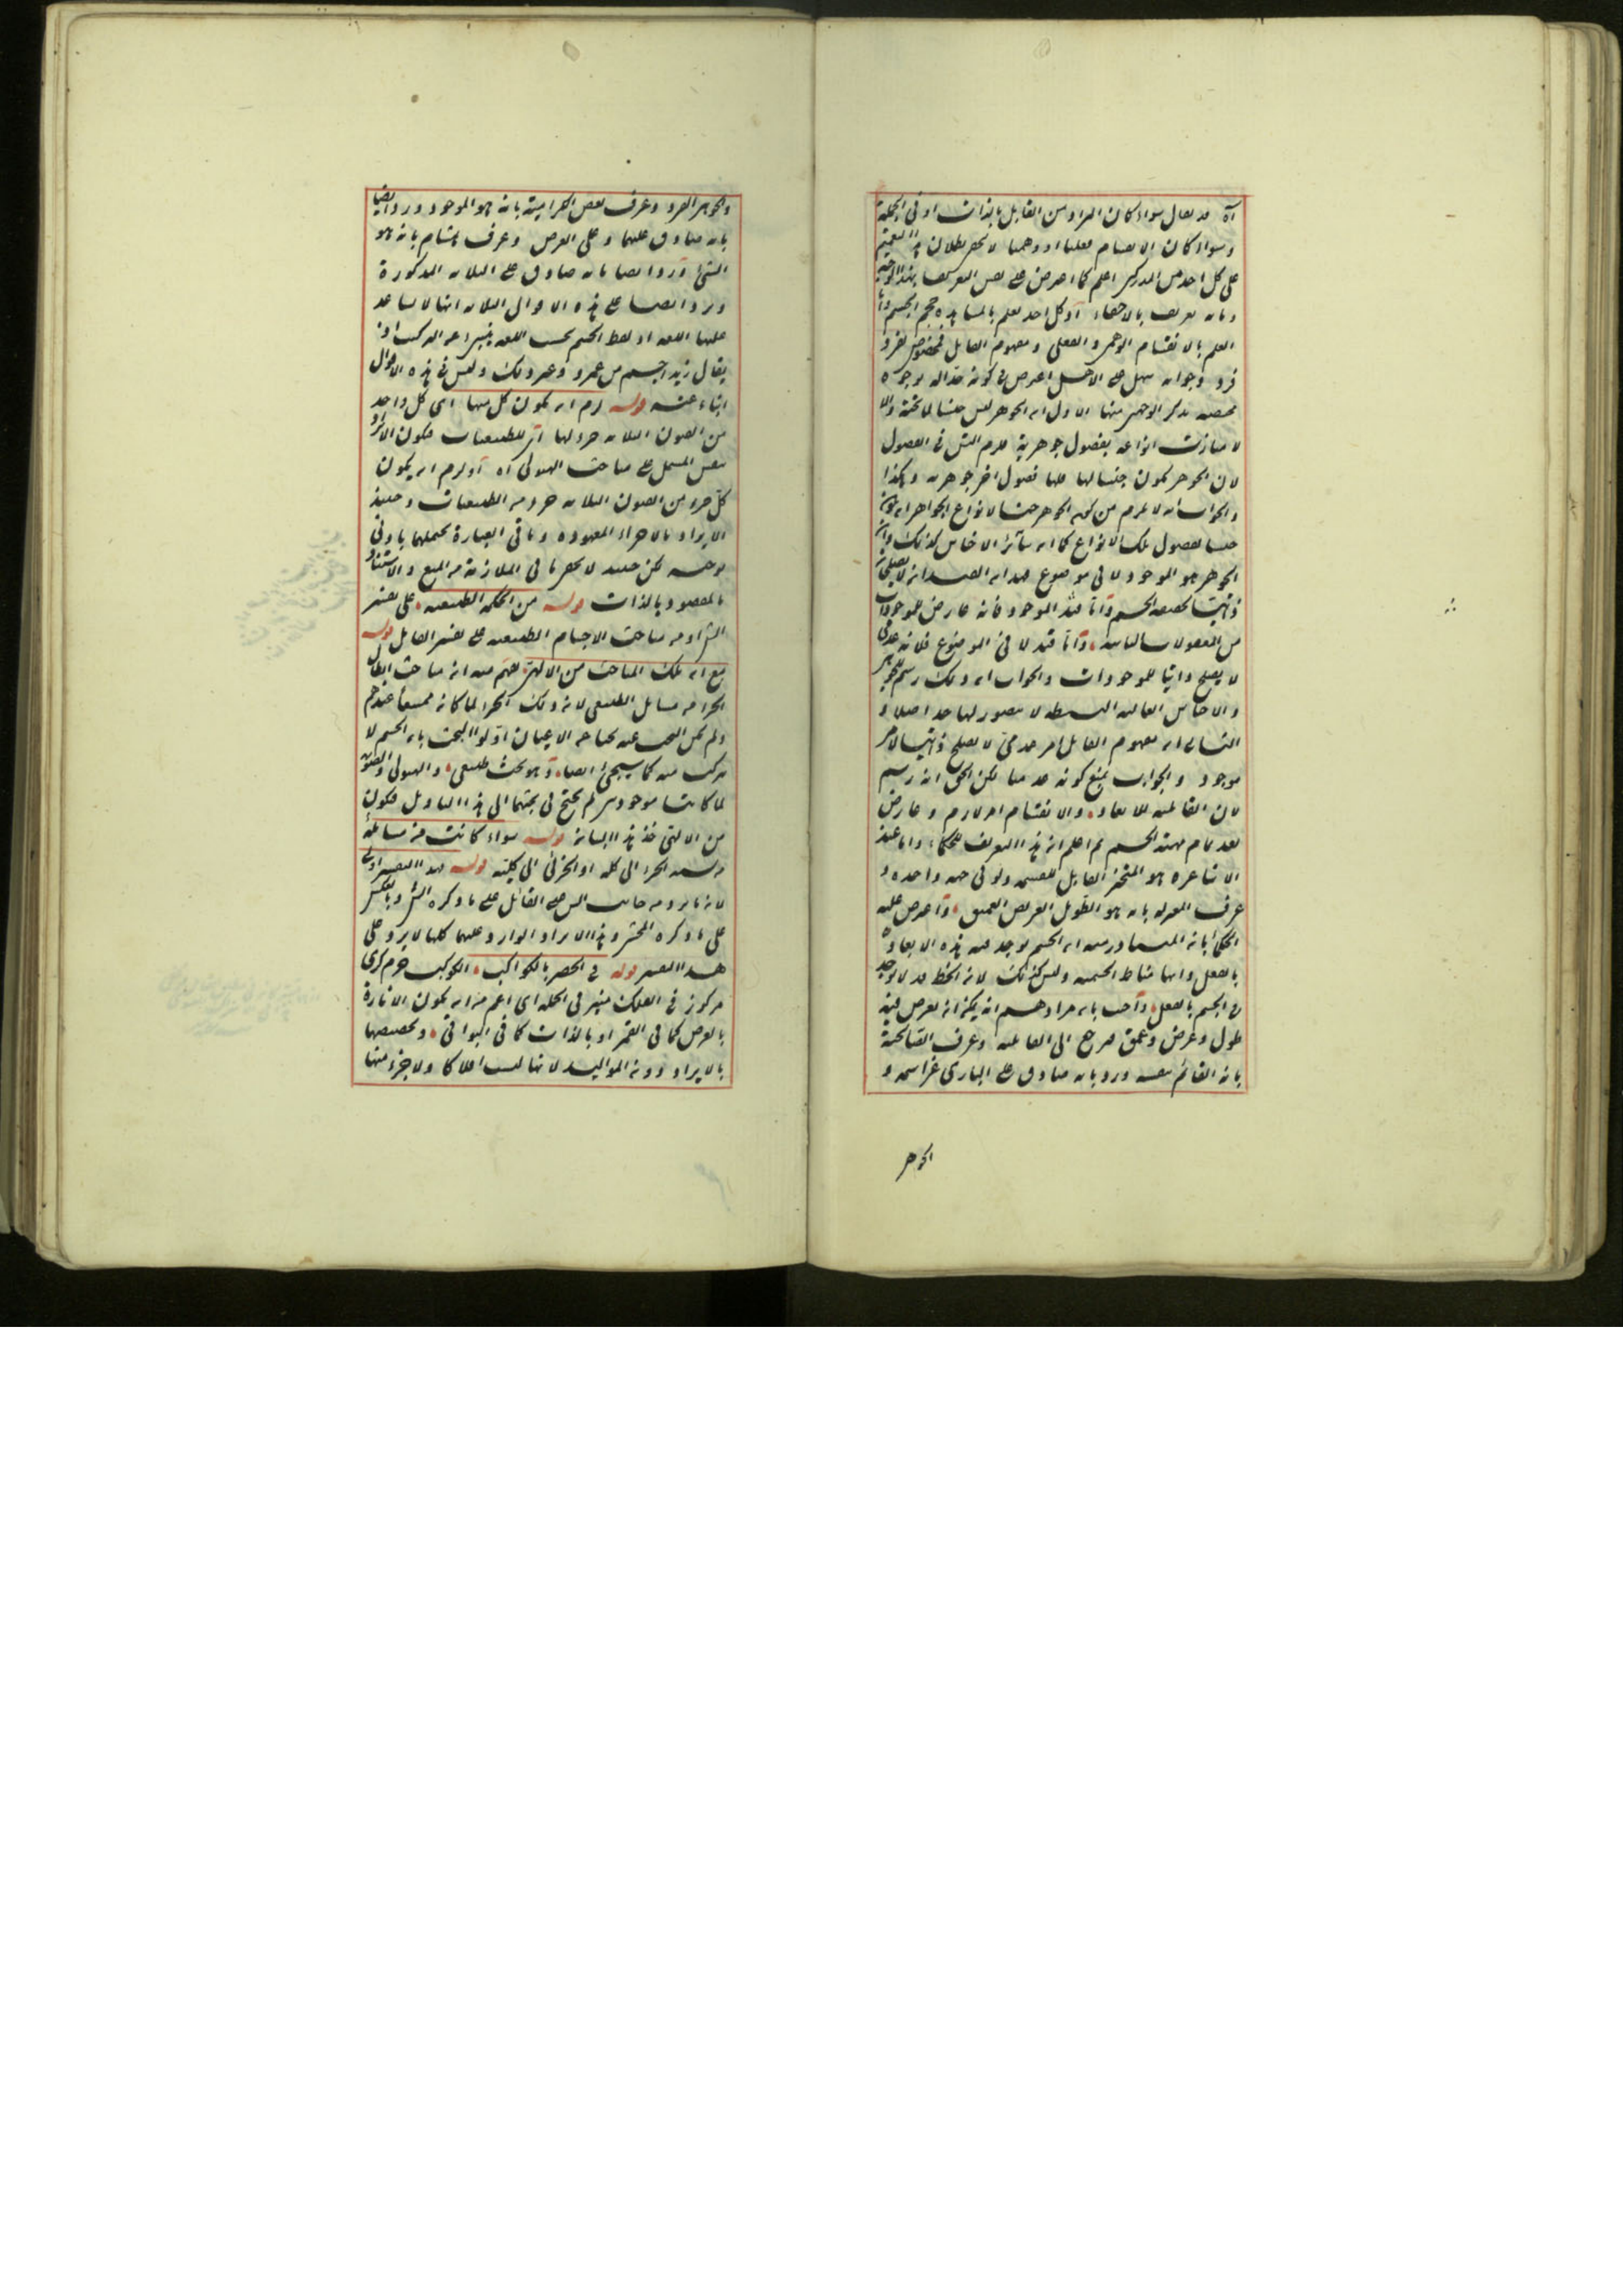 آه قد يقال سواء كان المراد من القابل بالذات او فى الجملة
وسواء كان الانقسام فعليا او وهميا لا يظهر بطلان هذا التعميم
على كل احد من المدركين اعلم كما اعترض على نفس التعريف بهذا الوجه
وبانه تعريف بالاخفاء اذ كل احد يعلم بالمشاهدة حجم الجسم واما
العلم بالانقسام الوهمى والفعلى ومفهوم القابل فمخصوص بفرد
فرد وجوابه سهل على الامل اعترض فى كونه حدا له بوجوه
نذكر الوجهين منها الاول ان الجوهر ليس جنسا لما تحته والا
لامتازت انواعه بفصول جوهرية فلزم التس فى الفصول
لان الجوهر يكون جنسا لها فلها فصول اخر جوهرية وهكذا
والجواب انه لا يلزم من كون الجوهر جنسا لانواع الجواهر ان يكون
جنسا لفصول تلك الانواع كما ان سائر الاجناس كذلك وان
الجوهر هو الموجود لا فى موضوع فهذان القيدان لا يصلحان
ذاتيا لحقيقة الجسم واما قيد الموجود فانه عارض للموجودات
من المعقولات الثانية واما قيد لا فى الموضوع فلانه عدمى
لا يصلح ذاتيا للموجودات والجواب ان ذلك رسم للجوهر
والاجناس العالية البسيطة لا يتصور لها حد اصلا و
الثانى ان مفهوم القابل امر عدمى لا يصلح ذاتيا لامر
موجود والجواب بمنع كونه عدميا لكن الحق انه رسم
لان القابلية للابعاد والانقسام امر لازم وعارض
بعد تمام مهية الجسم ثم اعلم ان هذا التعريف للحكماء واما عند
الاشاعرة هو المتحيز القابل للقسمة ولو فى جهة واحدة و
عرف المعتزلة بانه هو الطويل العريض العميق واعترض عليه
الحكماء بانه المتبادر منه ان الجسم يوجد فيه هذه الابعاد
بالفعل وانها مناط الجسمية وليس كذلك لان الخط قد لا يوجد
فى الجسم بالفعل واجيب بان مرادهم انه يمكن ان يعرض فيه
طول وعرض وعمق فرجع الى القابلية وعرف الصالحية
بانه القائم بنفسه ورد بانه صادق على البارى عز اسمه و
الجوهر
والجوهر الفرد وعرف بعض الكرامية بانه هو الموجود ورد ايضا
بانه صادق عليهما وعلى العرض وعرف هشام بانه هو
الشئ ورد ايضا بانه صادق على الثلاثة المذكورة
ويرد ايضا على هذه الاقوال الثلاثة انها لا يساعد
عليها اللغة اذ لفظ الجسم بحسب اللغة ينبئ عن التركيب اذ
يقال زيد اجسم من عمرو وغير ذلك وليس فى هذه الاقوال
انباء عنه قوله لزم ان يكون كل منها اى كل واحد
من الفنون الثلاثة جزء لها اى للطبيعيات فيكون الايراد
بنفس المشتمل على مباحث الهيولى آه او لزم ان يكون
كل جزء من الفنون الثلاثة جزء من الطبيعيات وحينئذ
الايراد بالاجزاء المعهودة وباقى العبارة يحتملهما بادنى
توجيه لكن حينئذ لا يظهر ما فى الملازمة من المنع والاستناد
بالمقصود بالذات قوله من الحكمة الطبيعية على تفسير
الش اذ من مباحث الاجسام الطبيعية على تفسير القابل قوله
مع ان تلك المباحث من الالهى يفهم منه ان مباحث ابطال
الجزء من مسائل الطبيعى لان ذلك الجزء لما كان ممتنعا عندهم
ولم يكن البحث عنه بحثا عن الاعيان اولوا البحث بان الجسم لا
يتركب منه كما سيجئ ايضا وهو بحث طبيعى والهيولى والصورة
لما كانتا موجودتين لم يحتج فى بحثهما الى هذا التاويل فيكون
من الالهى خذ هذا البيان قوله سواء كانت من مسائله
نسبة الجزء الى كله او الجزئى الى كليته قوله بهذا التفسير اولى
لان ما يرد من جانب الش على القائل على ما ذكره الش وبالعكس
على ما ذكره المحشى وهذا الايراد الوارد عليهما كلها لا يرد على
هذا التفسير قوله فى الحصر بالكواكب الكوكب جرم كرى
مركوز فى الفلك منير فى الجملة اى اعم من ان يكون الانارة
بالعرض كما فى القمر او بالذات كما فى البواقى وتخصيصها
بالايراد دون المواليد لانها ليست افلاكا ولا جزء منها